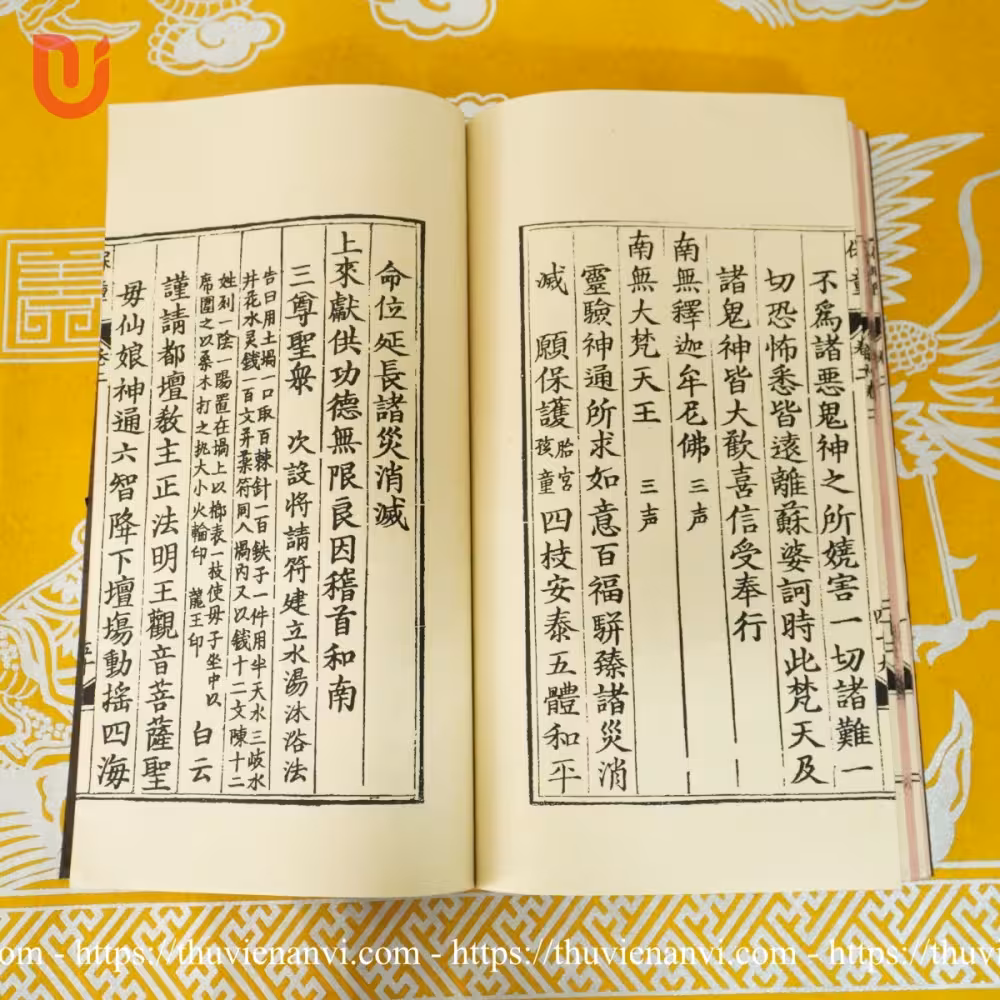 不爲諸悪鬼神之所嬈害一切諸難一
切恐怖悉皆遠離蘇婆訶時此梵天及
諸鬼神皆大歡喜信受奉行
南無釋迦牟尼佛 三声
南無大梵天王 三声
靈驗神通所求如意百福駢臻諸災消
滅 願保護胎宮孩童四枝安泰五體和平
命位延長諸災消滅
上來獻供功德無限良因稽首和南
三尊聖衆 次設將請符建立水湯沐浴法
告曰用土堝一口取百棘針一百鉄子一件用半天水三岐水
井花水灵錢一百文弄柔符同入堝內又以錢十二文陳十二
姓列一陰一陽置在堝上以榔表一技使毋子坐中以
席圍之以桑木打之挑大小火輪印 龍王印 白云
謹請都壇敎主正法明王觀音菩薩聖
毋仙娘神通六智降下壇場動摇四海
U
https://thuvienanvi.com - https://thuvienanvi.com